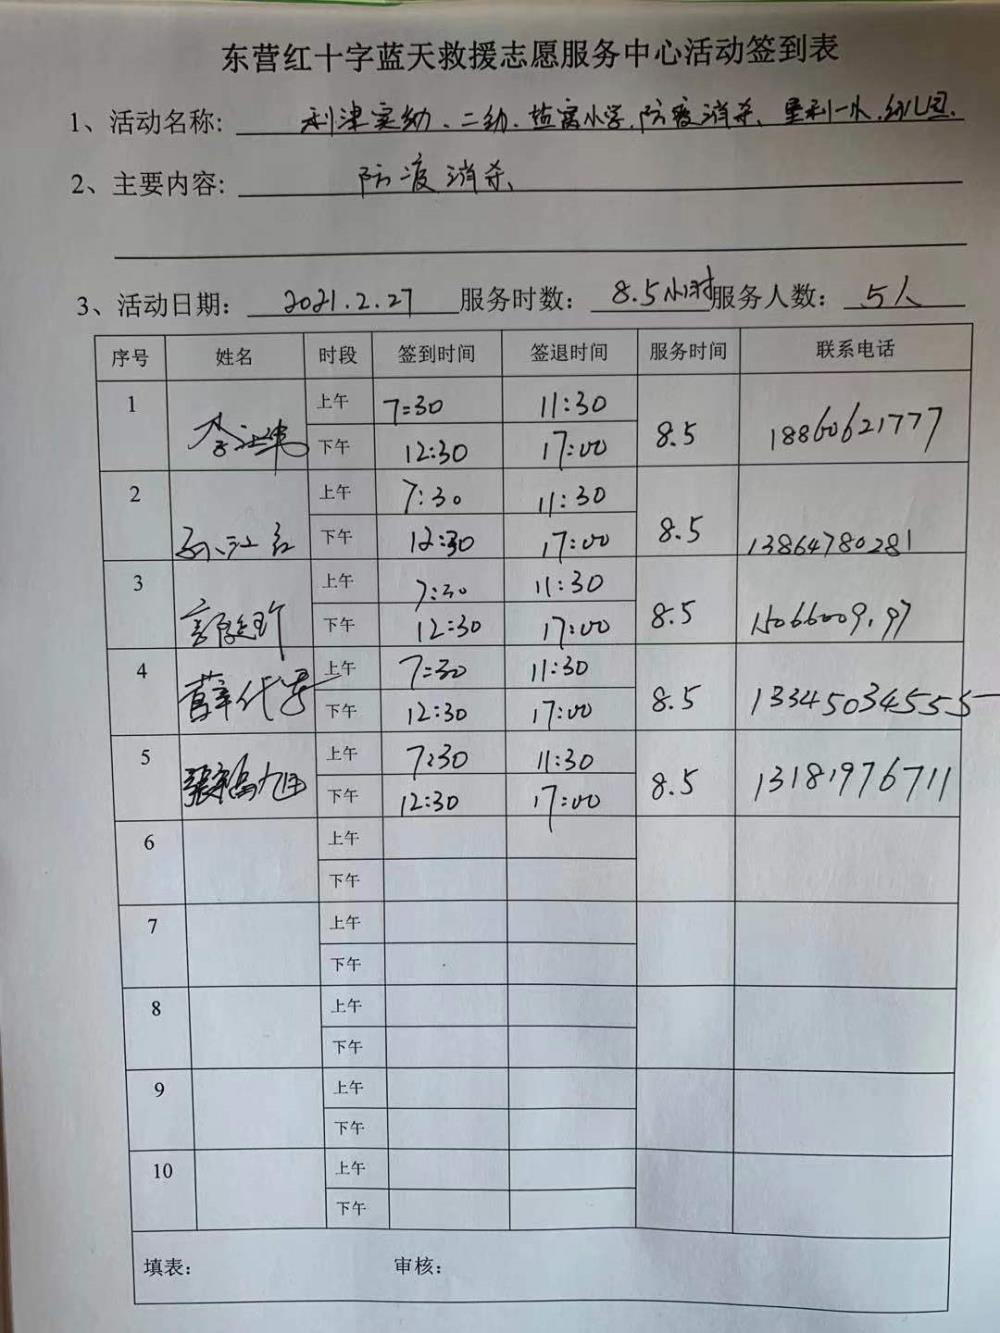 东营红十字蓝天救援志愿服务中心活动签到表
1、活动名称: 利津实幼、二幼、盐窝小学,防疫消杀、垦利一小,幼儿园.
2、主要内容: 防疫消杀、
3、活动日期: 2021.2.27 服务时数: 8.5小时 服务人数: 5人
序号 姓名 时段 签到时间 签退时间 服务时间 联系电话
1 上午 7:30 11:30 8.5 18860621777
下午 12:30 17:00
2 孙江红 上午 7:30 11:30 8.5 13864780281
下午 12:30 17:00
3 上午 7:30 11:30 8.5
下午 12:30 17:00
4 薛代 上午 7:30 11:30 8.5 13345034555
下午 12:30 17:00
5 上午 7:30 11:30 8.5 13181976711
下午 12:30 17:00
6 上午
下午
7 上午
下午
8 上午
下午
9 上午
下午
10 上午
下午
填表: 审核: